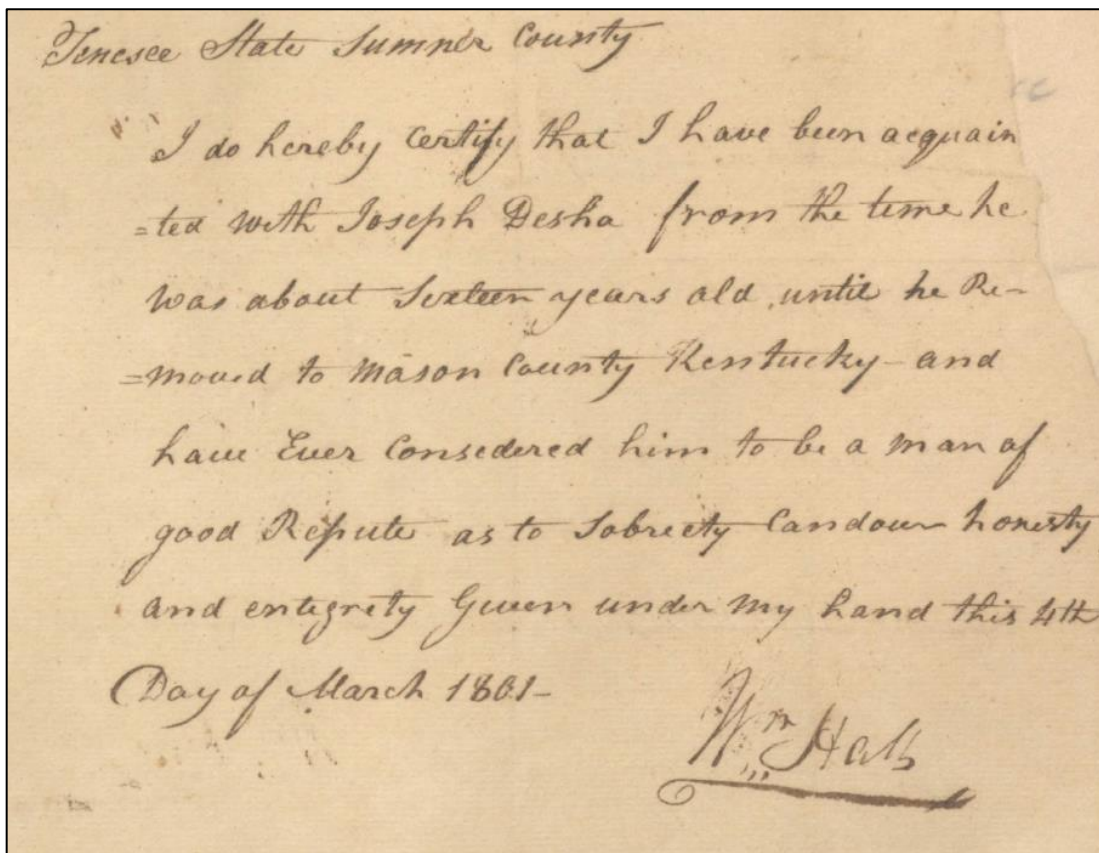 Tenesee State Sumner County
I do hereby Certify that I have been acquain
=ted with Joseph Desha from the time he
was about Sixteen years old, until he Re-
=moved to Mason County Kentucky - and
have Ever Considered him to be a man of
good Repute as to Sobriety Candour honesty
and entegrety Given under my hand this 4th
Day of March 1801-
Wm Hall